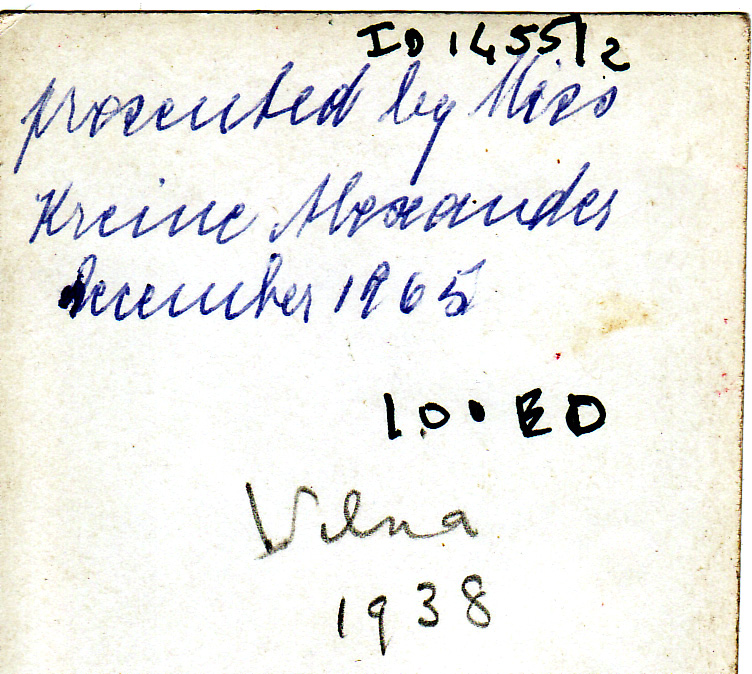 ID 1455/2
presented by Miss
Kreine Alexander
December 1965
100 ED
Vilna
1938